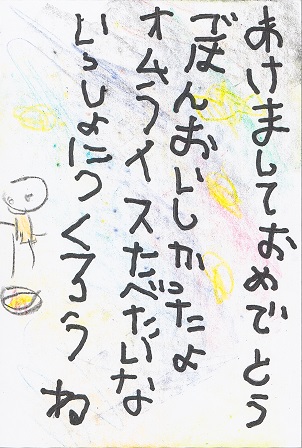 あけましておめでとう
ごはんおいしかったよ
オムライスたべたいな
いっしょにつくろうね